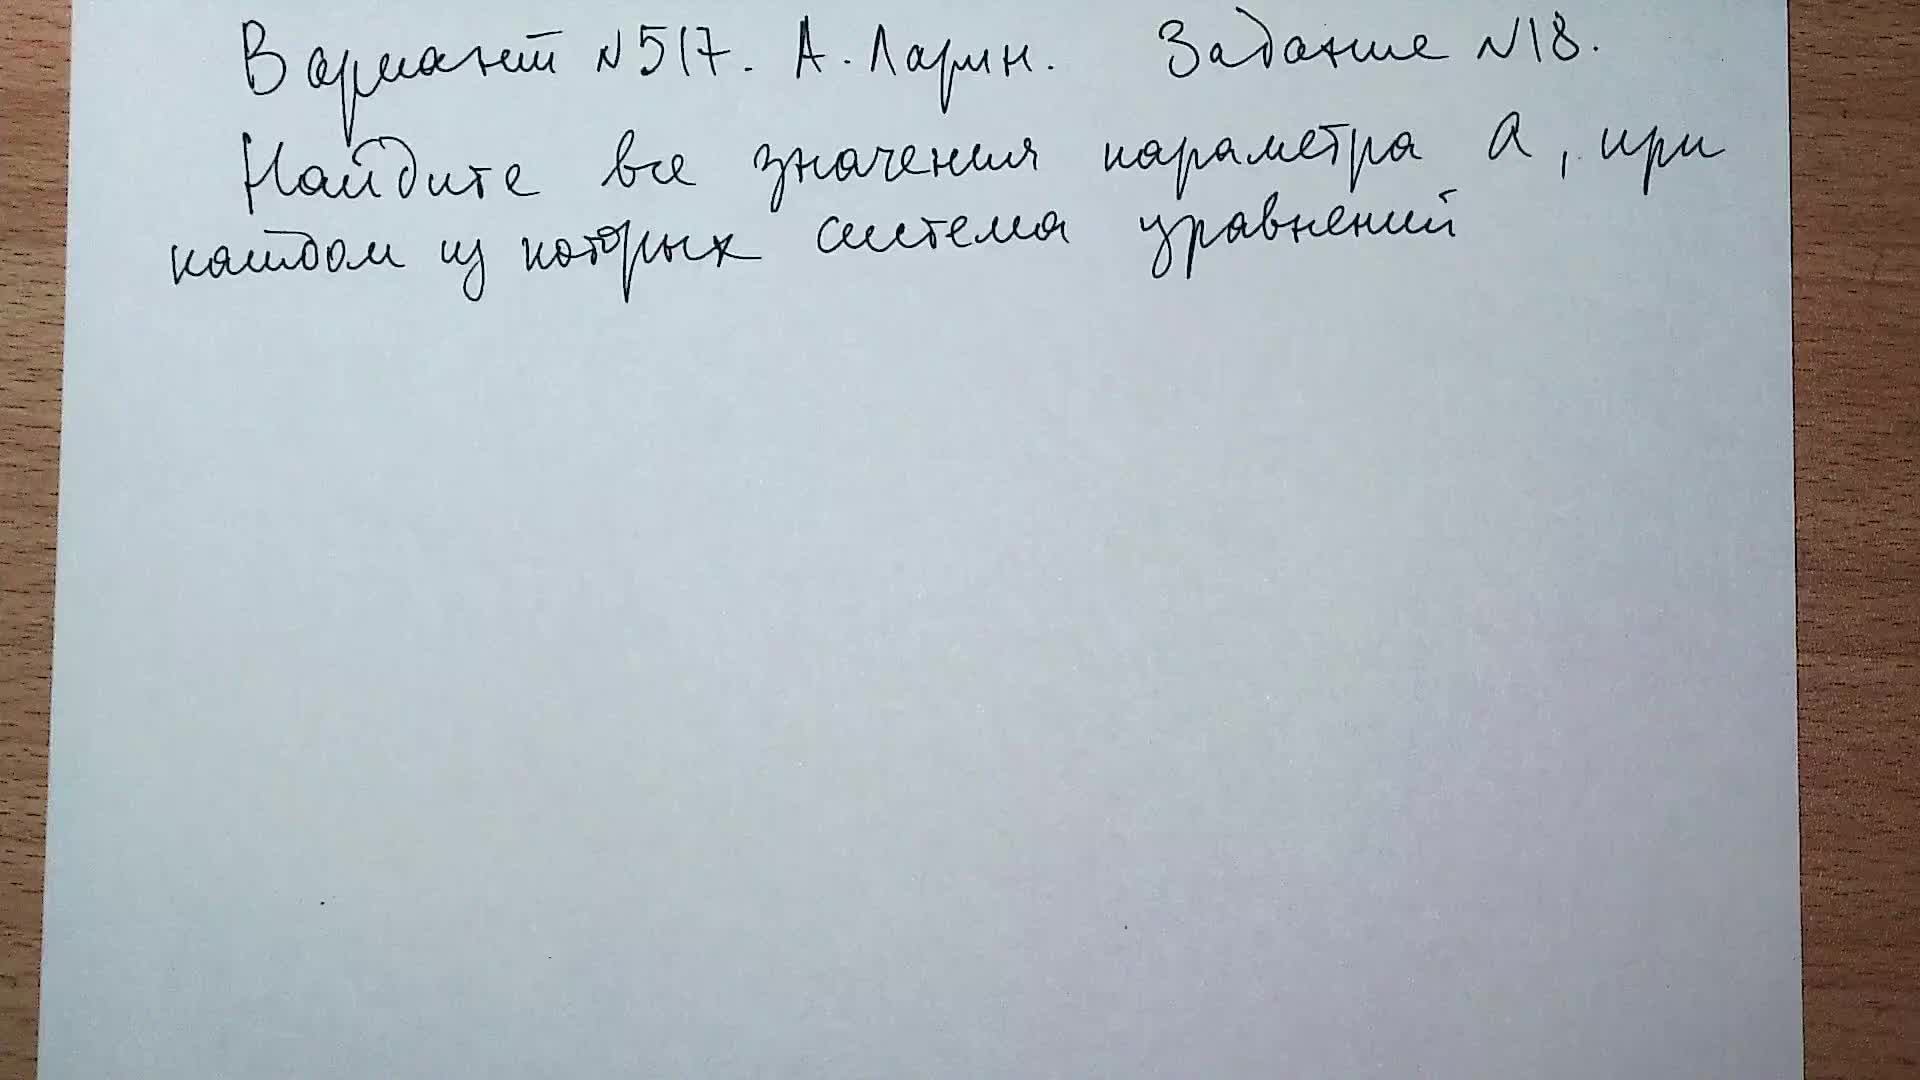 Вариант №517. А. Ларин. Задание №18.
Найдите все значения параметра а, при
каждом из которых система уравнений